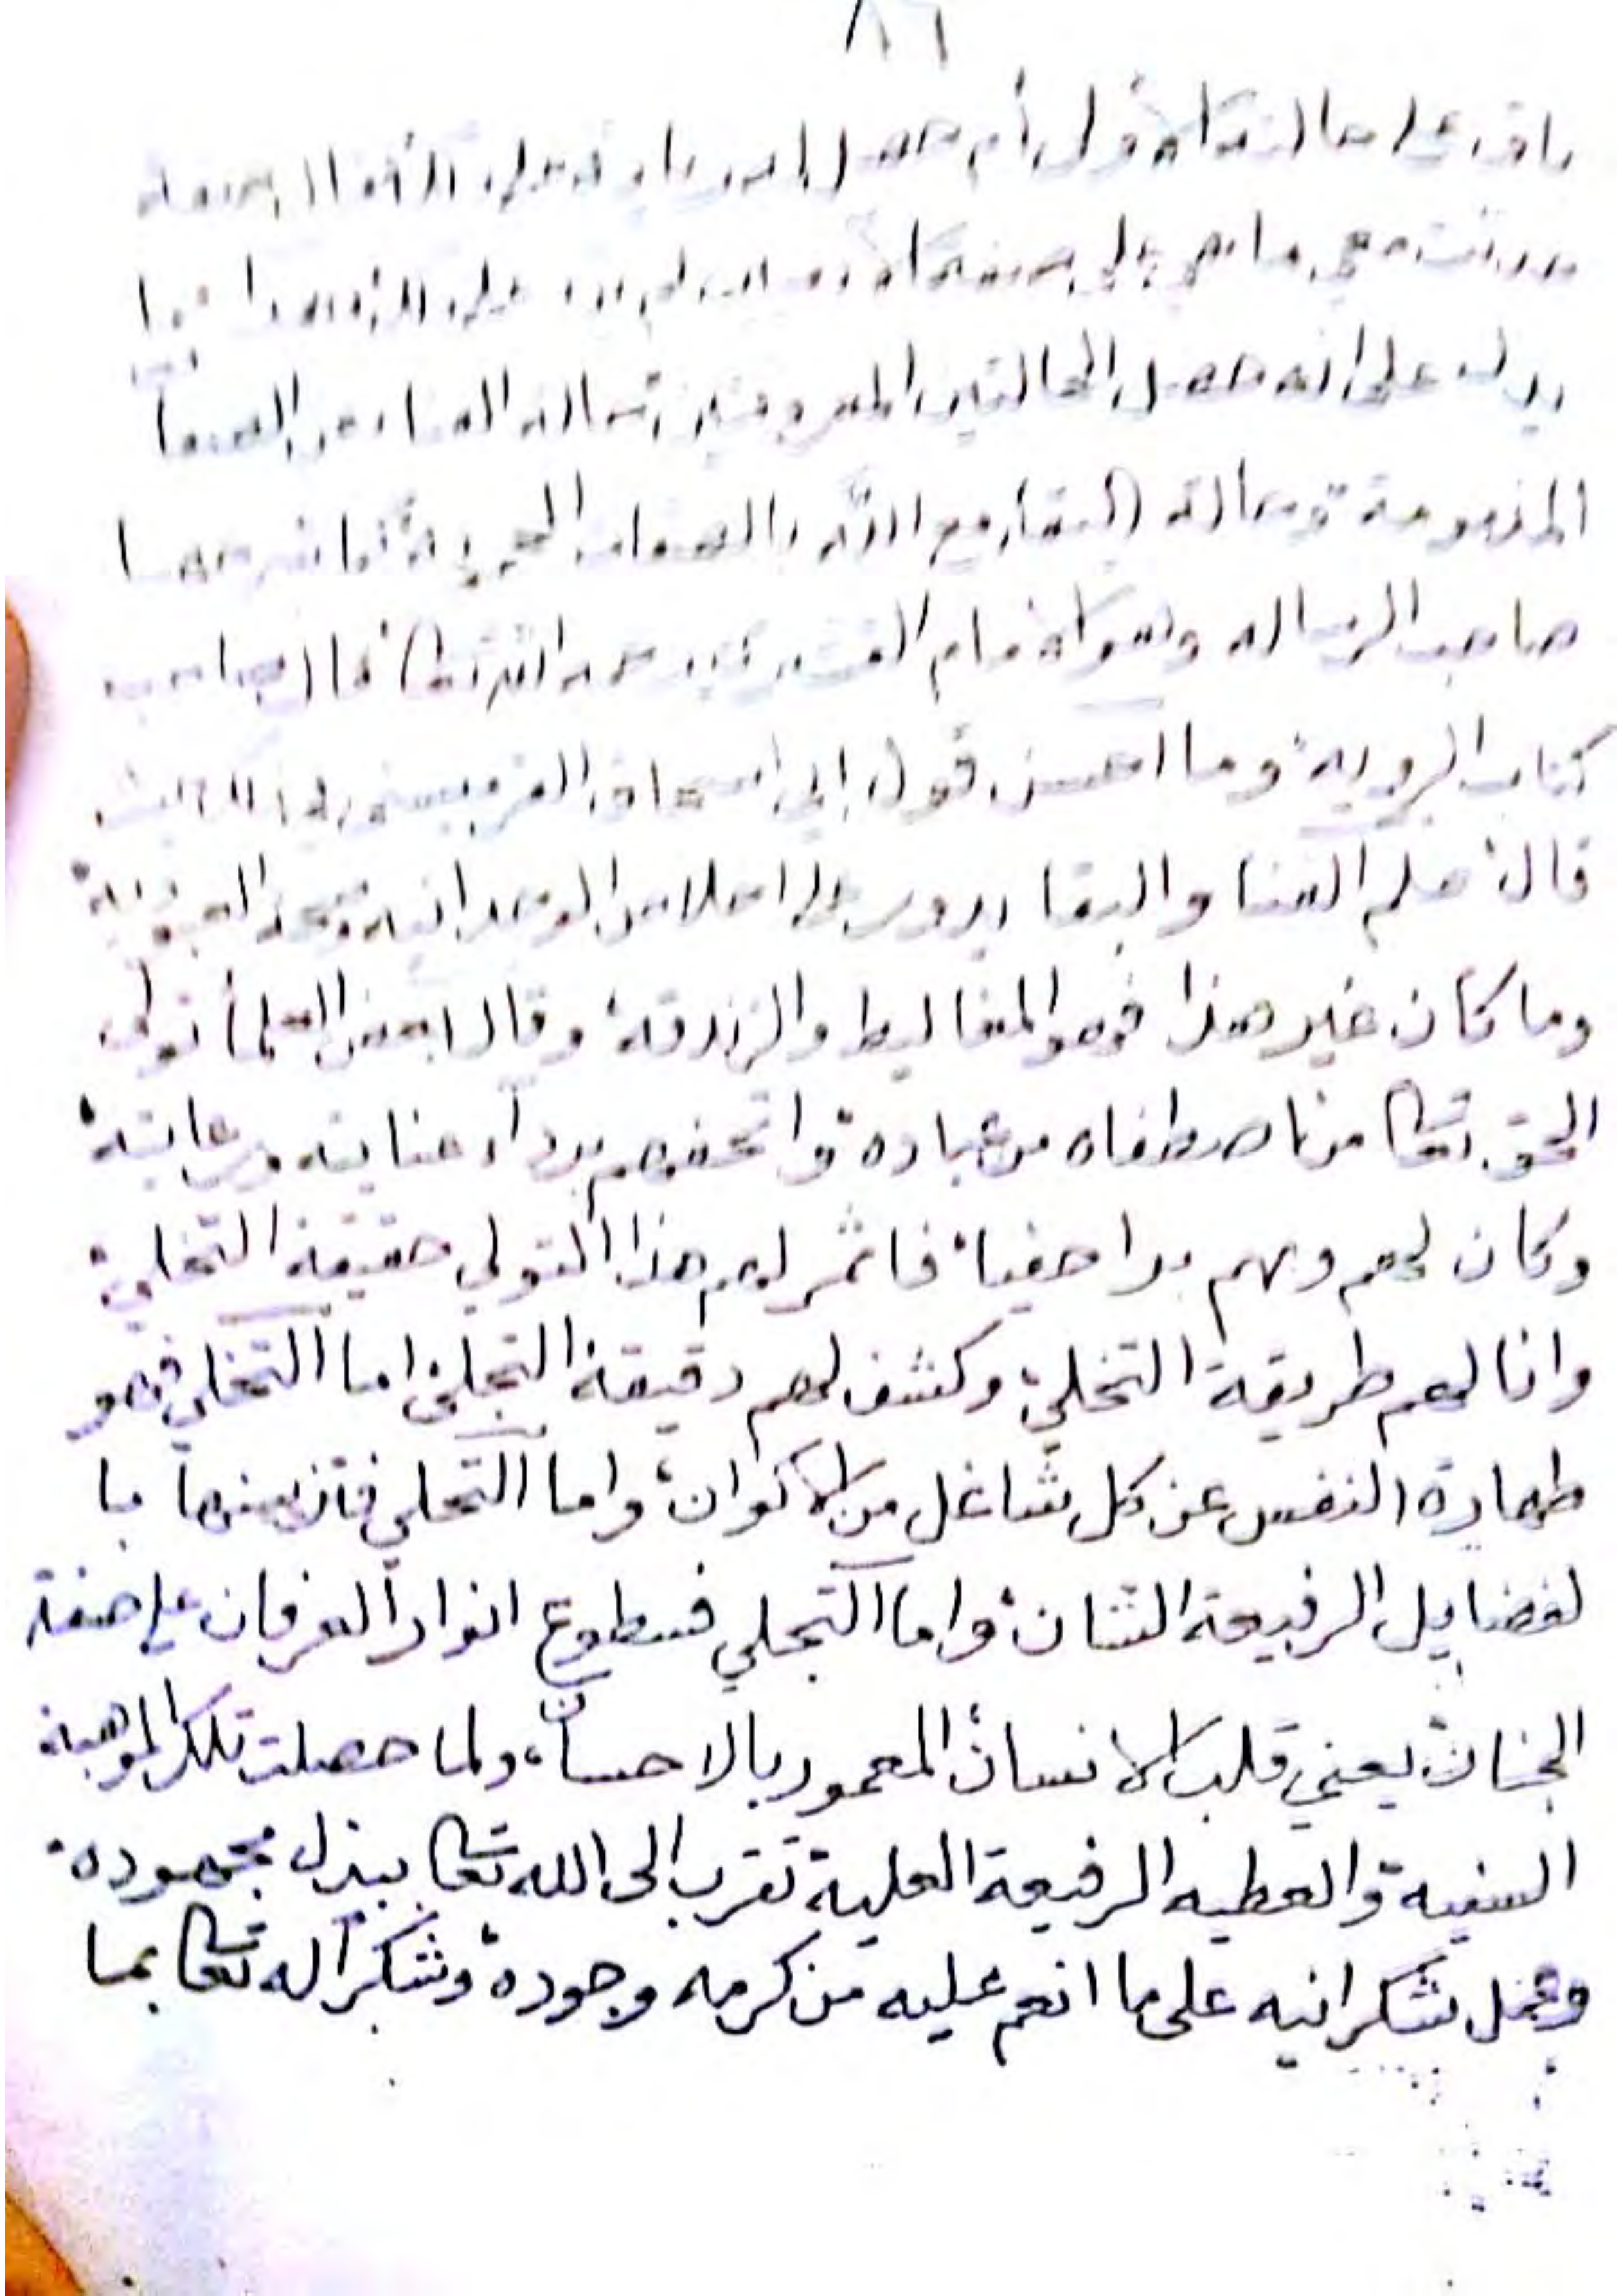 ٨٦
باق على حالته الأولى أم حصل له
يدل على انه حصل الحالتين المعروفتين حالة الفنا عن الصفات
المذمومة وحالة البقا مع الله بالصفات المحمودة كما شرحها
صاحب الرساله وهو الامام القشيري رحمه الله تعالى قال صاحب
كتاب الروية وما احسن قول ابي اسحاق القرميسيني
قال علم الفنا والبقا يدور على اخلاص الوحدانيه وصحة العبودية
وما كان غير هذا فهو المغاليط والزندقة وقال بعض العلمأ تولى
الحق تعالى من اصطفاه من عباده واتحفهم بردآء عنايته ورعايته
وكان لهم وبهم برا حفيا فاثمر لهم هذا التولي حقيقة التخلي
وانالهم طريقة التحلي وكشف لهم دقيقة التجلي اما التخلي فهو
طهارة النفس عن كل شاغل من الاكوان واما التحلي فتزيينها با
لفضايل الرفيعة الشان واما التجلي فسطوع انوار العرفان على صفة
الجنان يعني قلب الانسان المعمور بالاحسان ولما حصلت تلك الموهبة
السنية والعطيه الرفيعة العلية تقرب الى الله تعالى ببذل مجهوده
وعمل شكرانيه على ما انعم عليه من كرمه وجوده وشكرا له تعالى بما